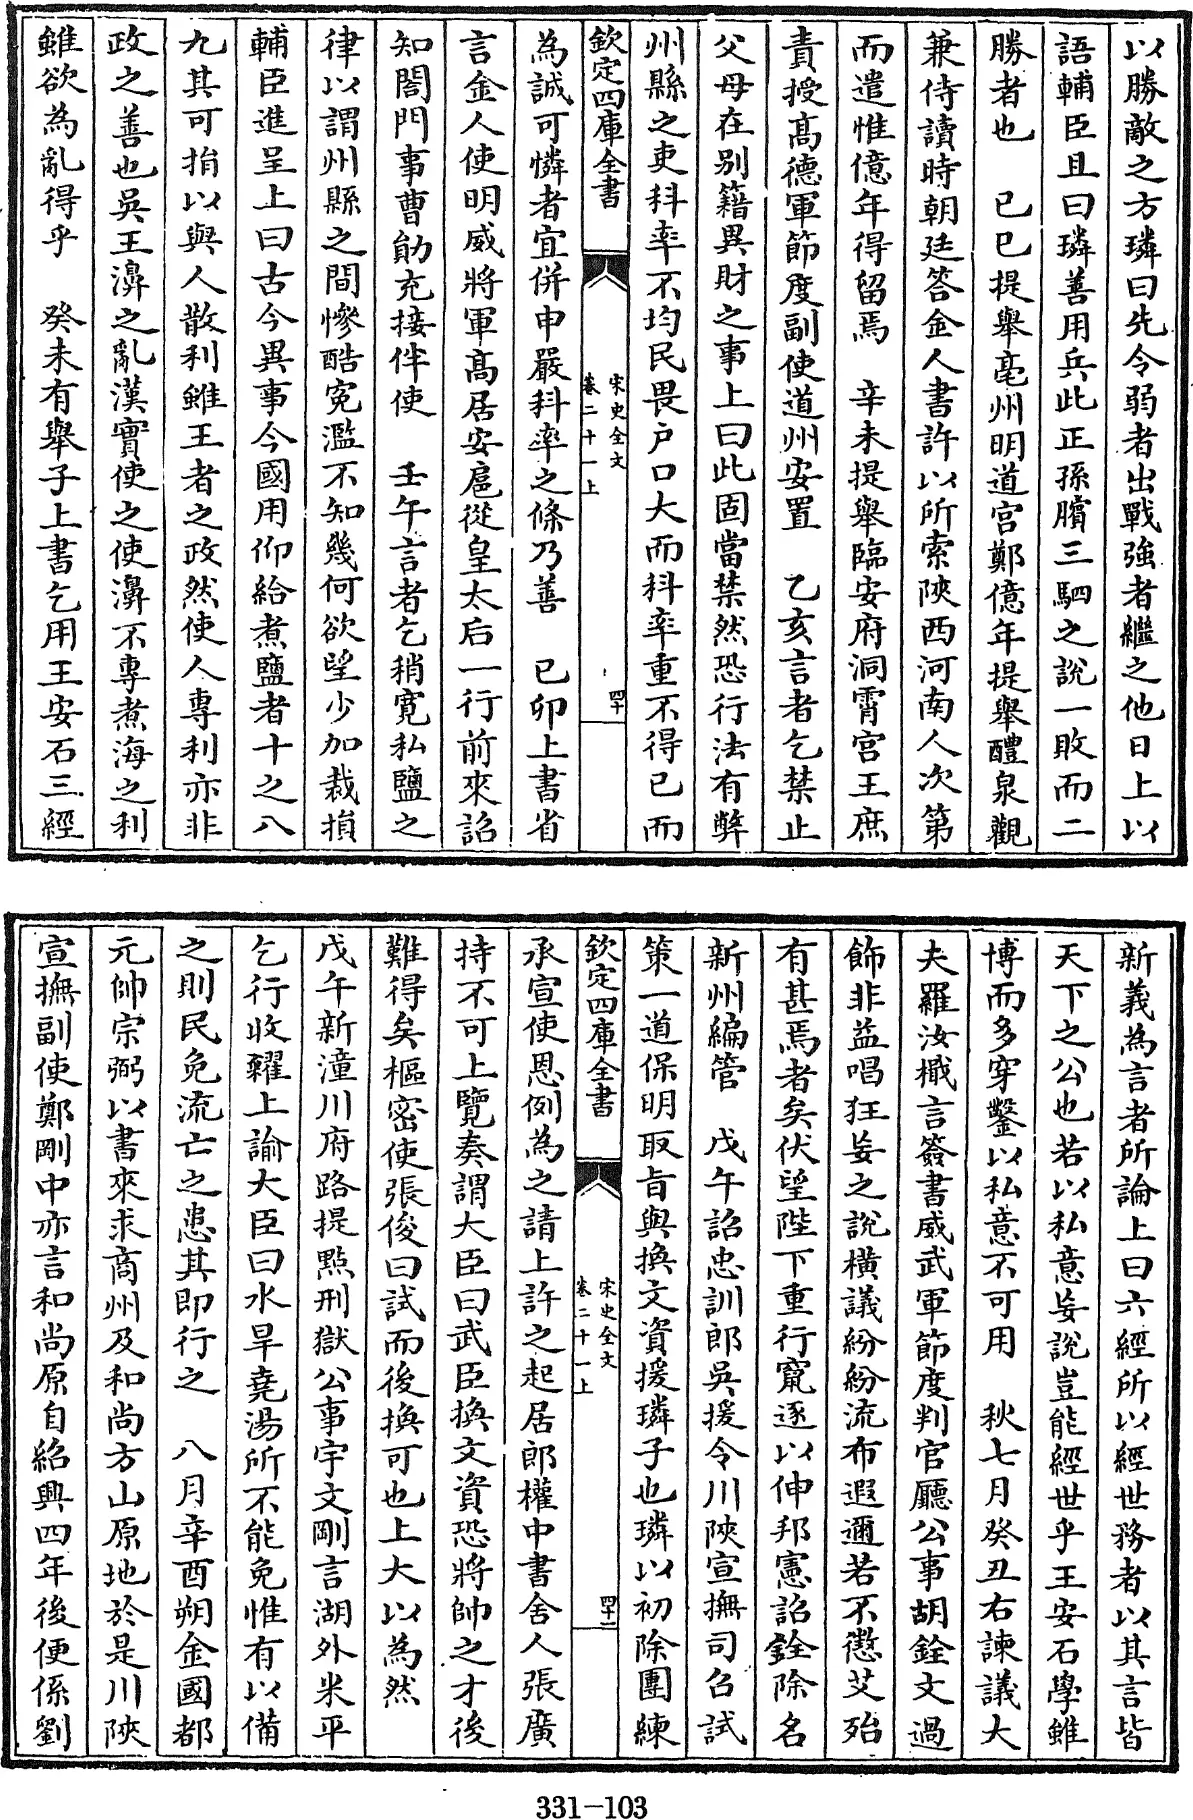 以勝敵之方璘曰先令弱者出戰強者繼之他日上以
語輔臣且曰璘善用兵此正孫臏三駟之說一敗而二
勝者也　己巳提舉亳州明道宮鄭億年提舉醴泉觀
兼侍讀時朝廷答金人書許以所索陝西河南人次第
而遣惟億年得留焉　辛未提舉臨安府洞霄宮王庶
責授髙德軍節度副使道州安置　乙亥言者乞禁止
父母在别籍異財之事上曰此固當禁然恐行法有弊
州縣之吏科率不均民畏户口大而科率重不得已而
欽定四庫全書
宋史全文
卷二十一上
四十
為誠可憐者宜併申嚴科率之條乃善　己卯上書省
言金人使明威將軍髙居安扈從皇太后一行前來詔
知閤門事曹勛充接伴使　壬午言者乞稍寛私鹽之
律以謂州縣之間慘酷寃濫不知幾何欲望少加裁損
輔臣進呈上曰古今異事今國用仰給煮鹽者十之八
九其可捐以與人散利雖王者之政然使人專利亦非
政之善也吳王濞之亂漢實使之使濞不專煮海之利
雖欲為亂得乎　癸未有舉子上書乞用王安石三經
新義為言者所論上曰六經所以經世務者以其言皆
天下之公也若以私意妄說豈能經世乎王安石學雖
博而多穿鑿以私意不可用　秋七月癸丑右諫議大
夫羅汝檝言簽書威武軍節度判官廳公事胡銓文過
飾非益唱狂妄之說橫議紛紛流布遐邇若不懲艾殆
有甚焉者矣伏望陛下重行竄逐以伸邦憲詔銓除名
新州編管　戊午詔忠訓郎吳援令川陝宣撫司召試
策一道保明取旨與換文資援璘子也璘以初除團練
欽定四庫全書
宋史全文
卷二十一上
四十一
承宣使恩例為之請上許之起居郎權中書舍人張廣
持不可上覽奏謂大臣曰武臣換文資恐將帥之才後
難得矣樞密使張俊曰試而後換可也上大以為然
戊午新潼川府路提點刑獄公事宇文剛言湖外米平
乞行收糴上諭大臣曰水旱堯湯所不能免惟有以備
之則民免流亡之患其即行之　八月辛酉朔金國都
元帥宗弼以書來求商州及和尚方山原地於是川陝
宣撫副使鄭剛中亦言和尚原自紹興四年後便係劉
331-103